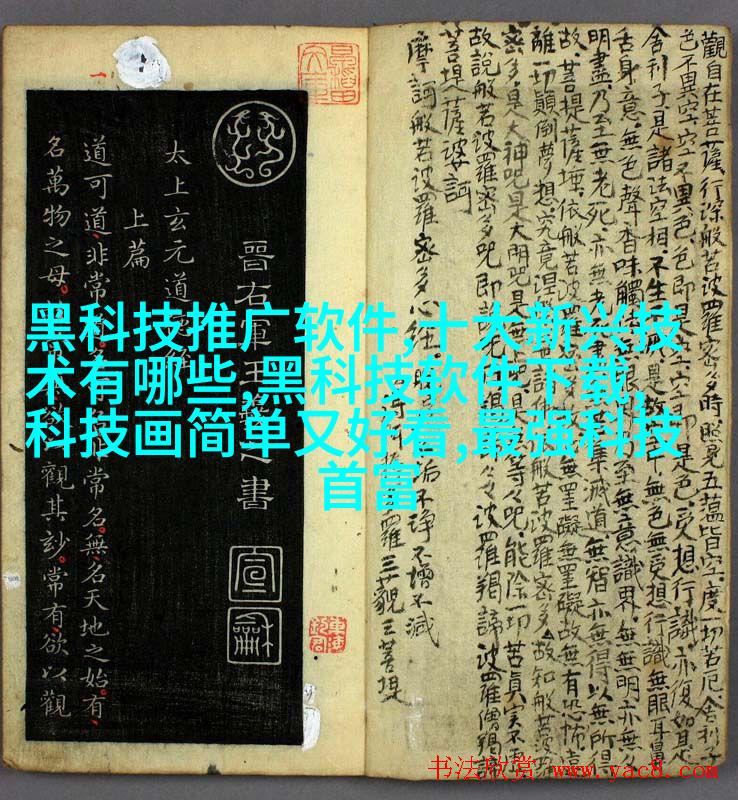 黑科技推广软件,十大新兴技
术有哪些,黑科技软件下载,
科技画简单又好看,最强科技
首富
觀自在菩薩行深般若波羅密多時照見五蘊皆空度一切苦厄舍利子
色不異空空不異色色即是空空即是色受想行識亦復如是
舍利子是諸法空相不生是故空中無色無受想行識無眼耳鼻
舌身意無色聲香味觸無眼至無意識界無無明亦無
明盡乃至無老死亦無老集滅道無智亦無得以無所得
故菩提薩埵依般若波羅無罣礙無罣礙故無有恐怖遠
離一切顛倒夢想究竟波羅密多故知般若波
密多是大神咒是大明咒是無等々咒能除一切苦真实不
故說般若波羅密多咒即說波羅揭諦波羅僧揭諦
菩提薩婆訶
摩訶般若波羅密多心經
垢不淨不增不減
三藐三菩提
晉右軍王之書
太上玄元道
上篇
道可道非常常名無名天地之始有
名萬物之母觀其玅常有欲以觀
宣
龢
书法欣赏 www.yac8.com